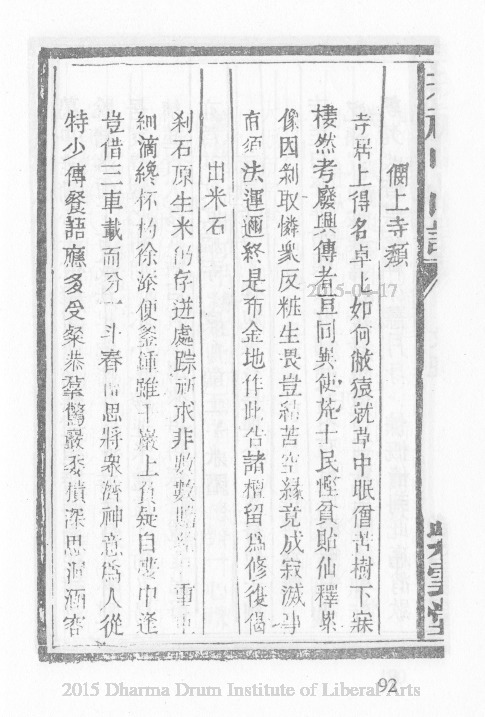 憫上寺頹
寺居上得名卓如何敝猿就草中眠僧苦樹下寐
棲然考廢興傳者亘同異使荒土民慳貧貼仙釋累
像因剎取憐衆反粧生畏豈結苦空緣竟成寂滅
有須法運邇終是布金地作此告諸檀留爲修復偈
出米石
剎石原生米仍存迸處踪求非數數贍重
細滴終杯杓徐添便釜鍾雖干巖上貧疑自甕中逢
豈借三車載而分一斗舂思將衆濟神意爲人從
特少傳餐語應多受粲恭羣驚嚴委積深思洞酒容
2015-04-17
92
2015 Dharma Drum Institute of Liberal Arts